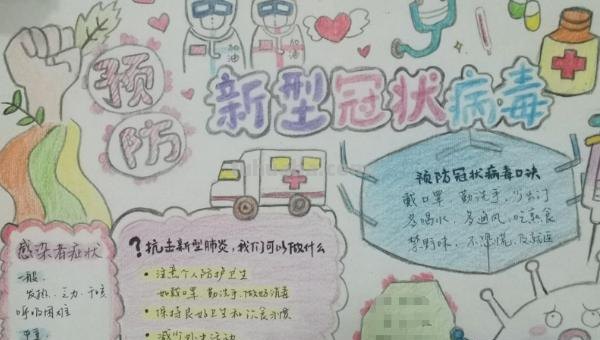 加油
加油
预防
新型冠状病毒
预防冠状病毒口诀
戴口罩,勤洗手,少出门
多喝水,多通风,吃熟食
禁野味,不恐慌,及就医
感染者症状
一般:
发热、乏力、干咳
呼吸困难
严重:
?抗击新型肺炎,我们可以做什么
• 注意个人防护卫生
如戴口罩、勤洗手、做好消毒
• 保持良好卫生和饮食习惯
• 减少外出活动